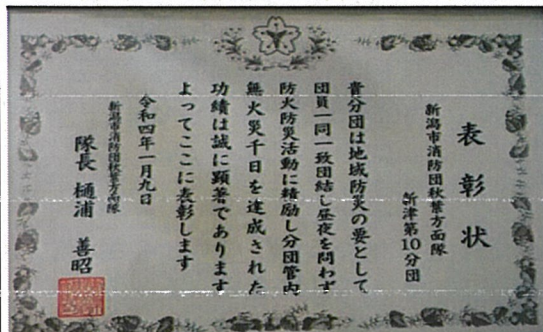 表彰状
新潟市消防団秋葉方面隊
新津第10分団
貴分団は地域防災の要として
団員一同一致団結し昼夜を問わず
防火防災活動に精励し分団管内
無火災千日を達成された
功績は誠に顕著であります
よってここに表彰します
令和四年一月九日
新潟市消防団秋葉方面隊
隊長 樋浦 善昭